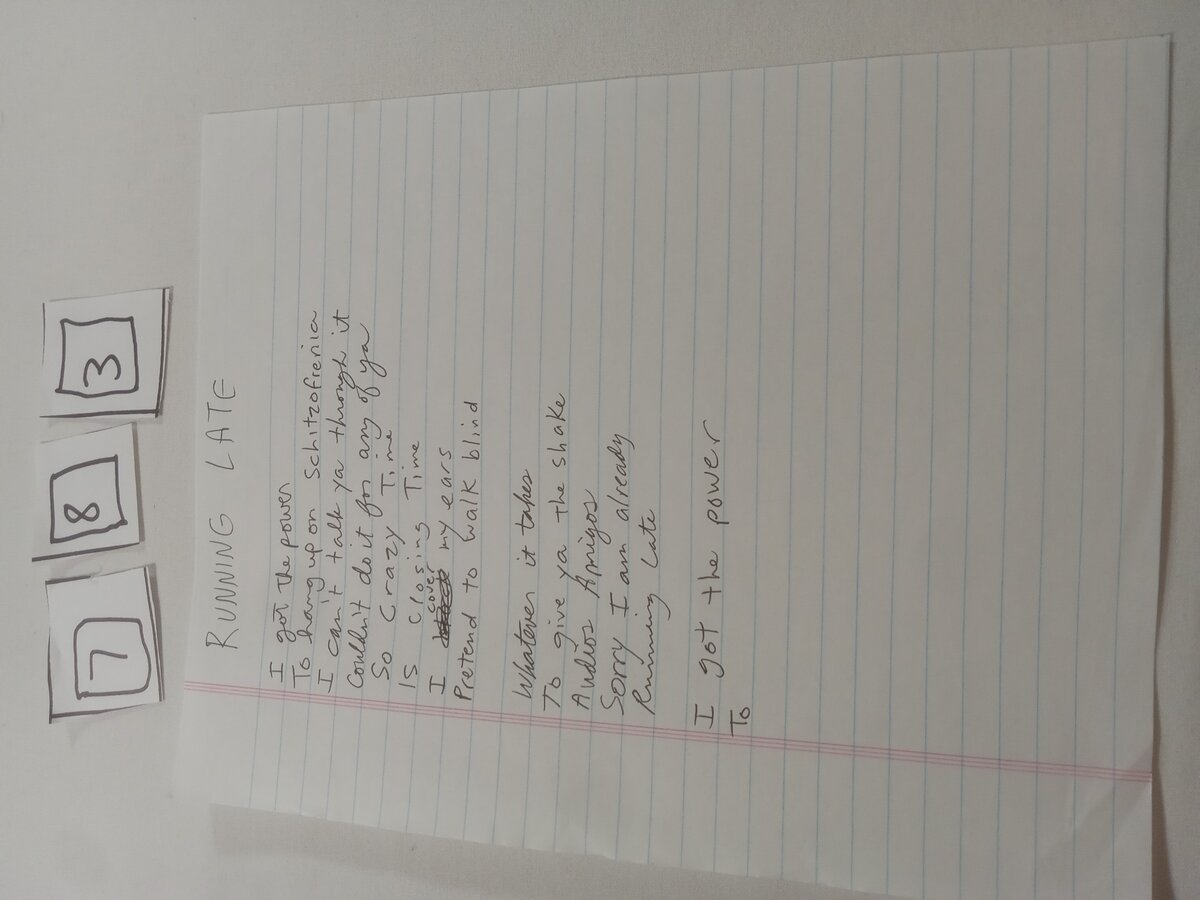 7 8 3
RUNNING LATE
I got the power
To hang up on Schitzofrenia
I can't talk ya through it
Couldn't do it for any of ya
So Crazy Time
Is Closing Time
I cover my ears
Pretend to walk blind
Whatever it takes
To give ya the shake
Audios Amigos
Sorry I am already
Running Late
I got the power
To